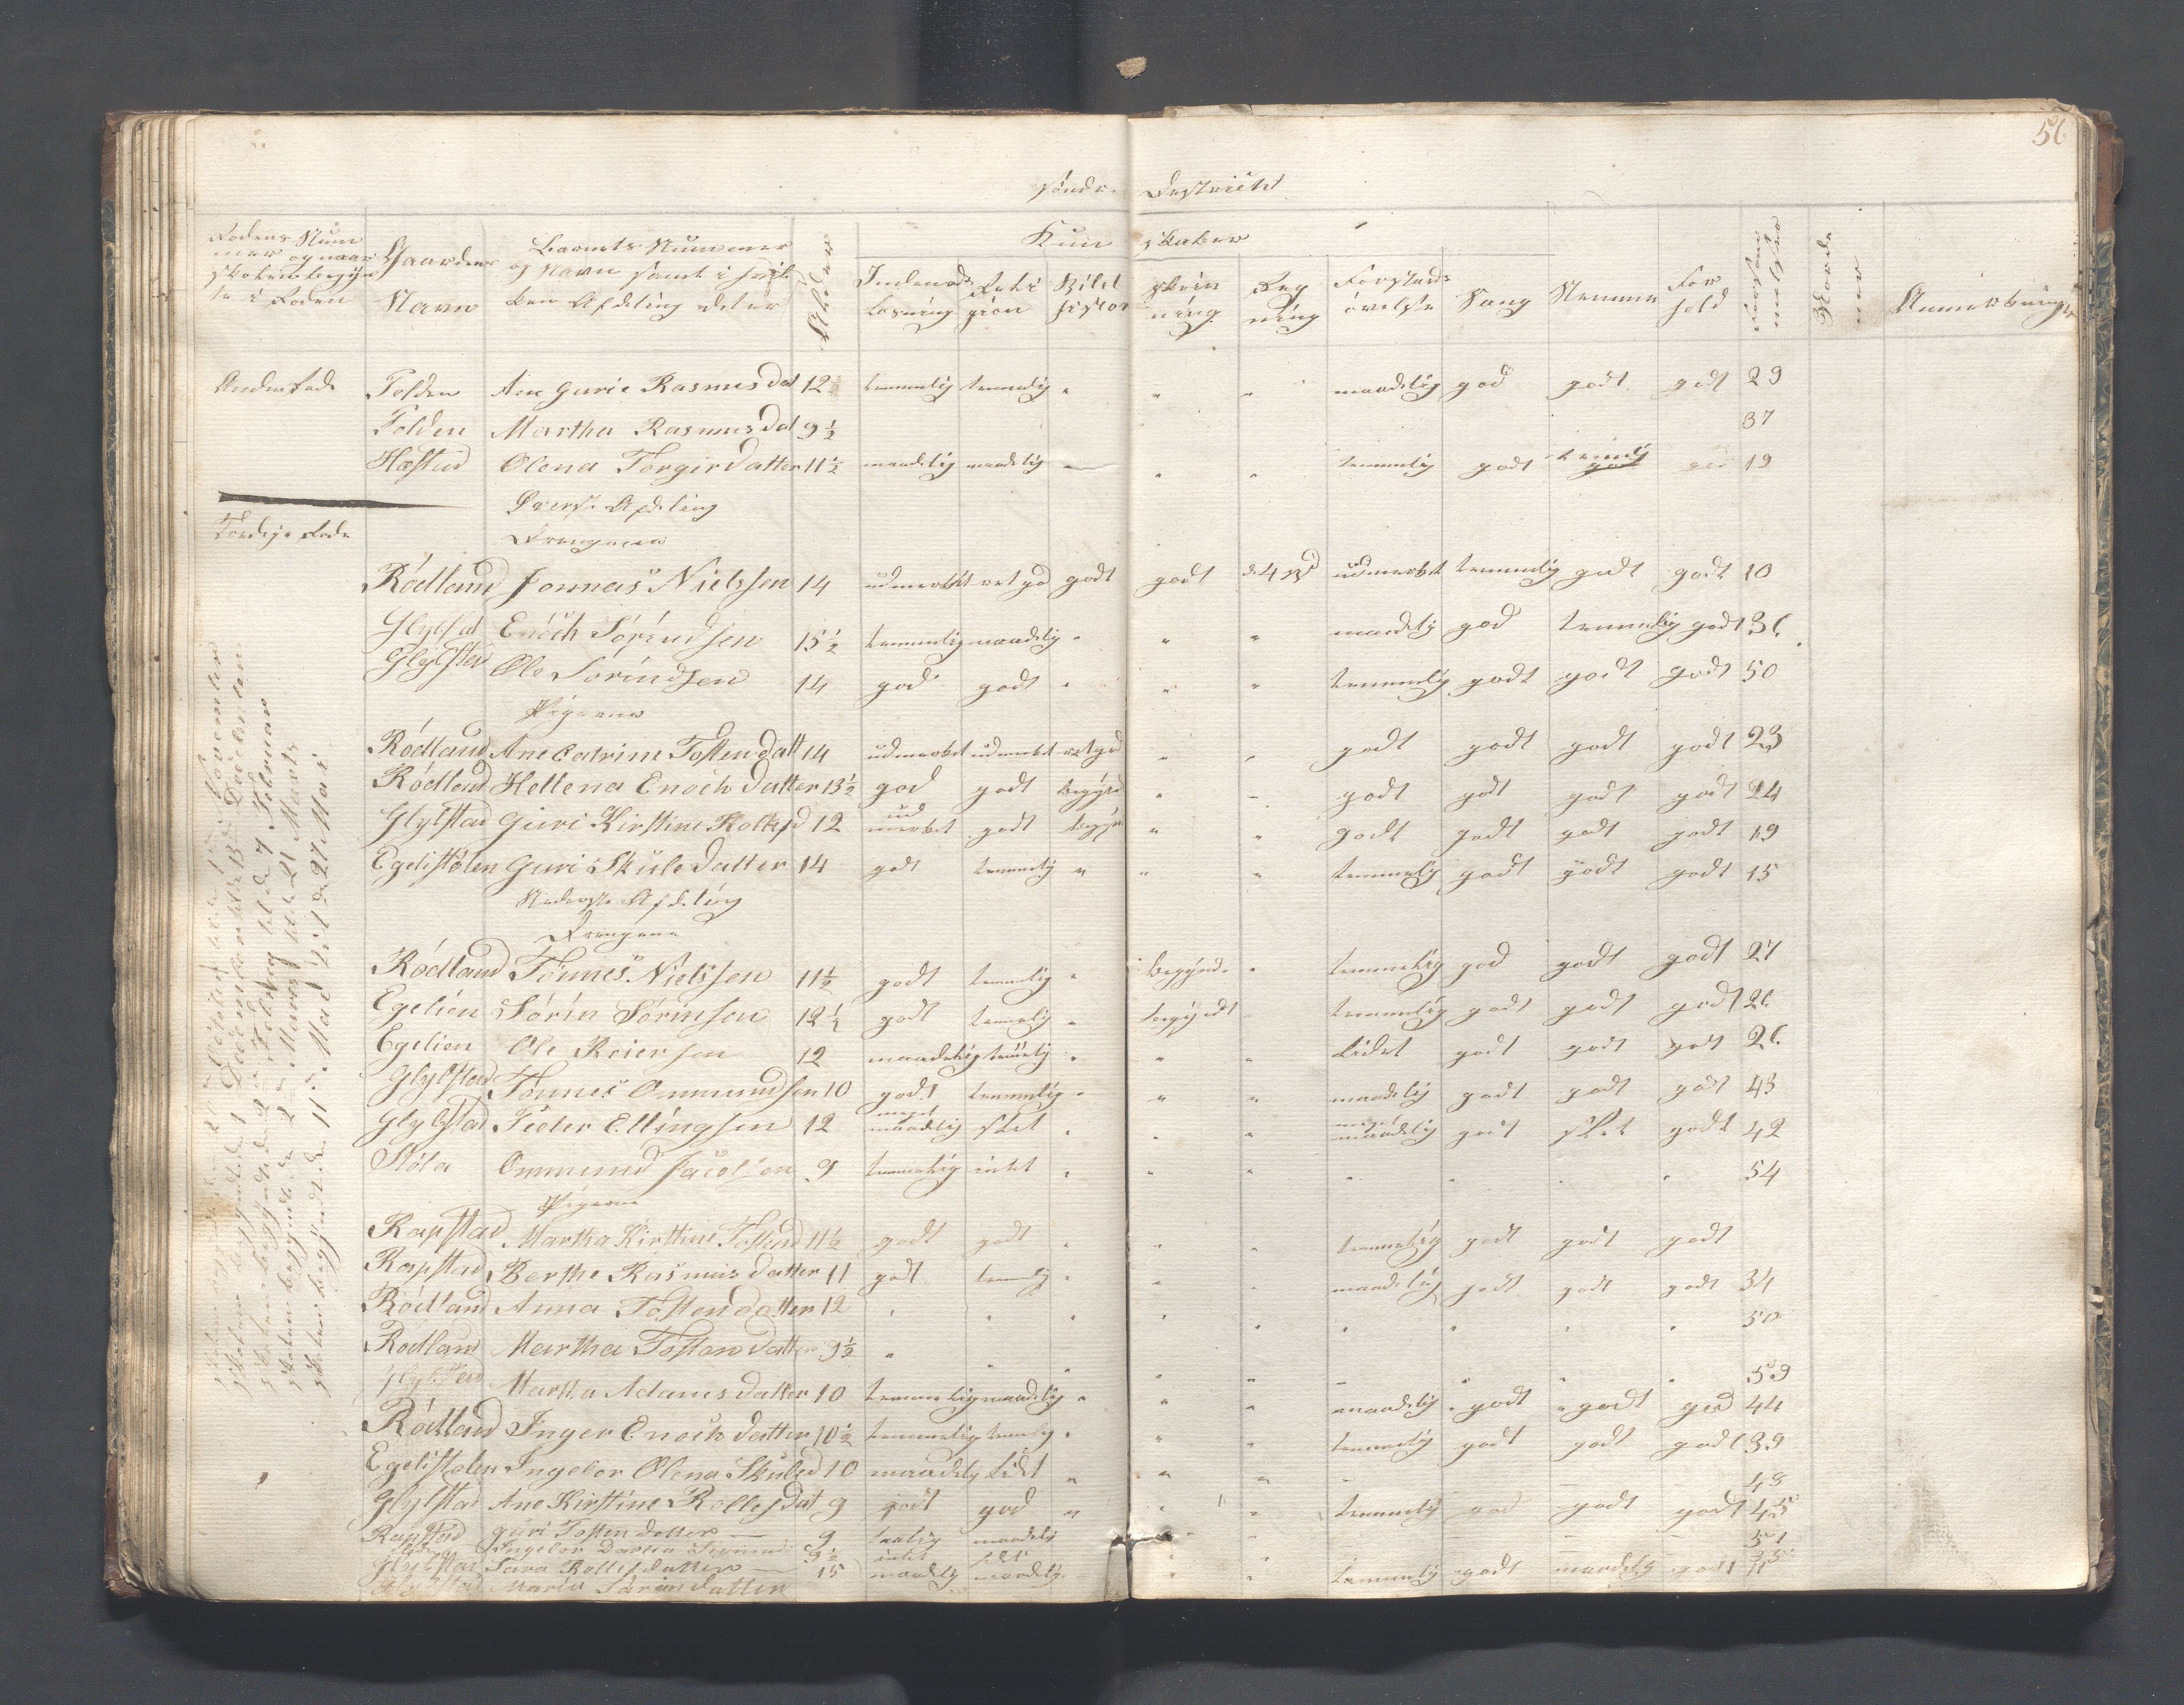 56
Søndre Destrickt
Rodens Num
mer og naar
skolen begyn
te i Roden
Gaardens
Navn
Barnets Nummer
og Navn samt i hvil
ken Afdeling det er
Alder
Kun skaber
Indenads
Læsning
Reli
gion
Bibel
histor
skriv
ning
Reg
ning
Forstands
øvelse
Sang
Nemme
For
hold
Forsøm
melser
Anmerkninger
Anden Rode Folden Ane Gurie Rasmusdat 12 temmelig temmelig " " " maadelig god godt godt 29
Folden Martha Rasmusdat 9½ 37
Hæstad Olena Torgirdatter 11½ maadelig maadelig " " " temmelig godt temlig god 19
Øverste Afdeling
Tredje Rode
Drengene
Rødland Jonnas Nielssen 14 udmerket ret god godt godt de 4 sp udmerket temmelig godt godt 10
Glypstad Enoch Sørindsen 15½ temmelig maadelig " " " maadelig god temmelig godt 36
Glypstad Ole Sørindsen 14 god godt " " " temmelig godt godt godt 50
Pigerne
Rødland Ane Catrine Tostendatt 14 udmerket udmerket ret god " " godt godt godt godt 23
Rødland Hellena Enochdatter 13½ god godt begynd " " godt godt godt godt 24
Glypstad Guri Kirstine Rollefsd 12 udmerket godt begyn " " godt godt godt godt 19
Egelistølen Guri Skuledatter 14 godt temmelig " " " temmelig godt godt godt 15
Nederste Afdeling
Drengene
Rødland Tønnes Nielssen 11½ godt temmelig " begynd " temmelig god godt godt 27
Egelien Sørin Sørinsen 12½ godt temmelig " begyndt temmelig godt godt godt 26
Egelien Ole Reiersen 12 maadelig temmelig " " " Lidet godt godt godt 26
Glypstad Tønnes Ommundsen 10 godt temmelig " " " maadelig godt godt godt 45
Glypstad Peder Ellingsen 12 meget maadelig slet " " " meget maadelig godt slet godt 42
Støla Ommund Jacobsen 9 temmelig intet " " " " " " " 54
Pigerne
Rapstad Martha Kirstine Tostend 11½ godt godt " " " temmelig godt godt godt
Rapstad Berthe Rasmusdatter 11 godt temmelig " " " maadelig godt godt godt 34
Rødland Anna Tostendatter 12 " " " " " " " " " 50
Rødland Martha Tostendatter 9½ " " " " " " " " 59
Glypstad Martha Adamsdatter 10 temmelig maadelig " " " maadelig godt godt god 44
Rødland Inger Enochdatter 10½ temmelig temmelig " " " temmelig godt godt godt 39
Egelistølen Ingebor Olena Skuled 10 maadelig lidt " " " 48
Glypstad Ane Kirstine Rollefsdat 9 godt god " " " temmelig god godt godt 45
Rapstad Guri Tostendatter 9 temlig maadelig 51
Ingebor Dorthea 9½ intet lidt
Glypstad Sara Rollefsdatter 15 maadelig maadelig temmelig godt maadelig godt
Glypstad Maria Sørensdatter
skolen begyndte den 1 December
skolen begyndte den 2 til den 7 Februar
skolen begyndte den 2 Marts til den 21 Marts
skolen begyndte den 11 Mai til den 27 Mai